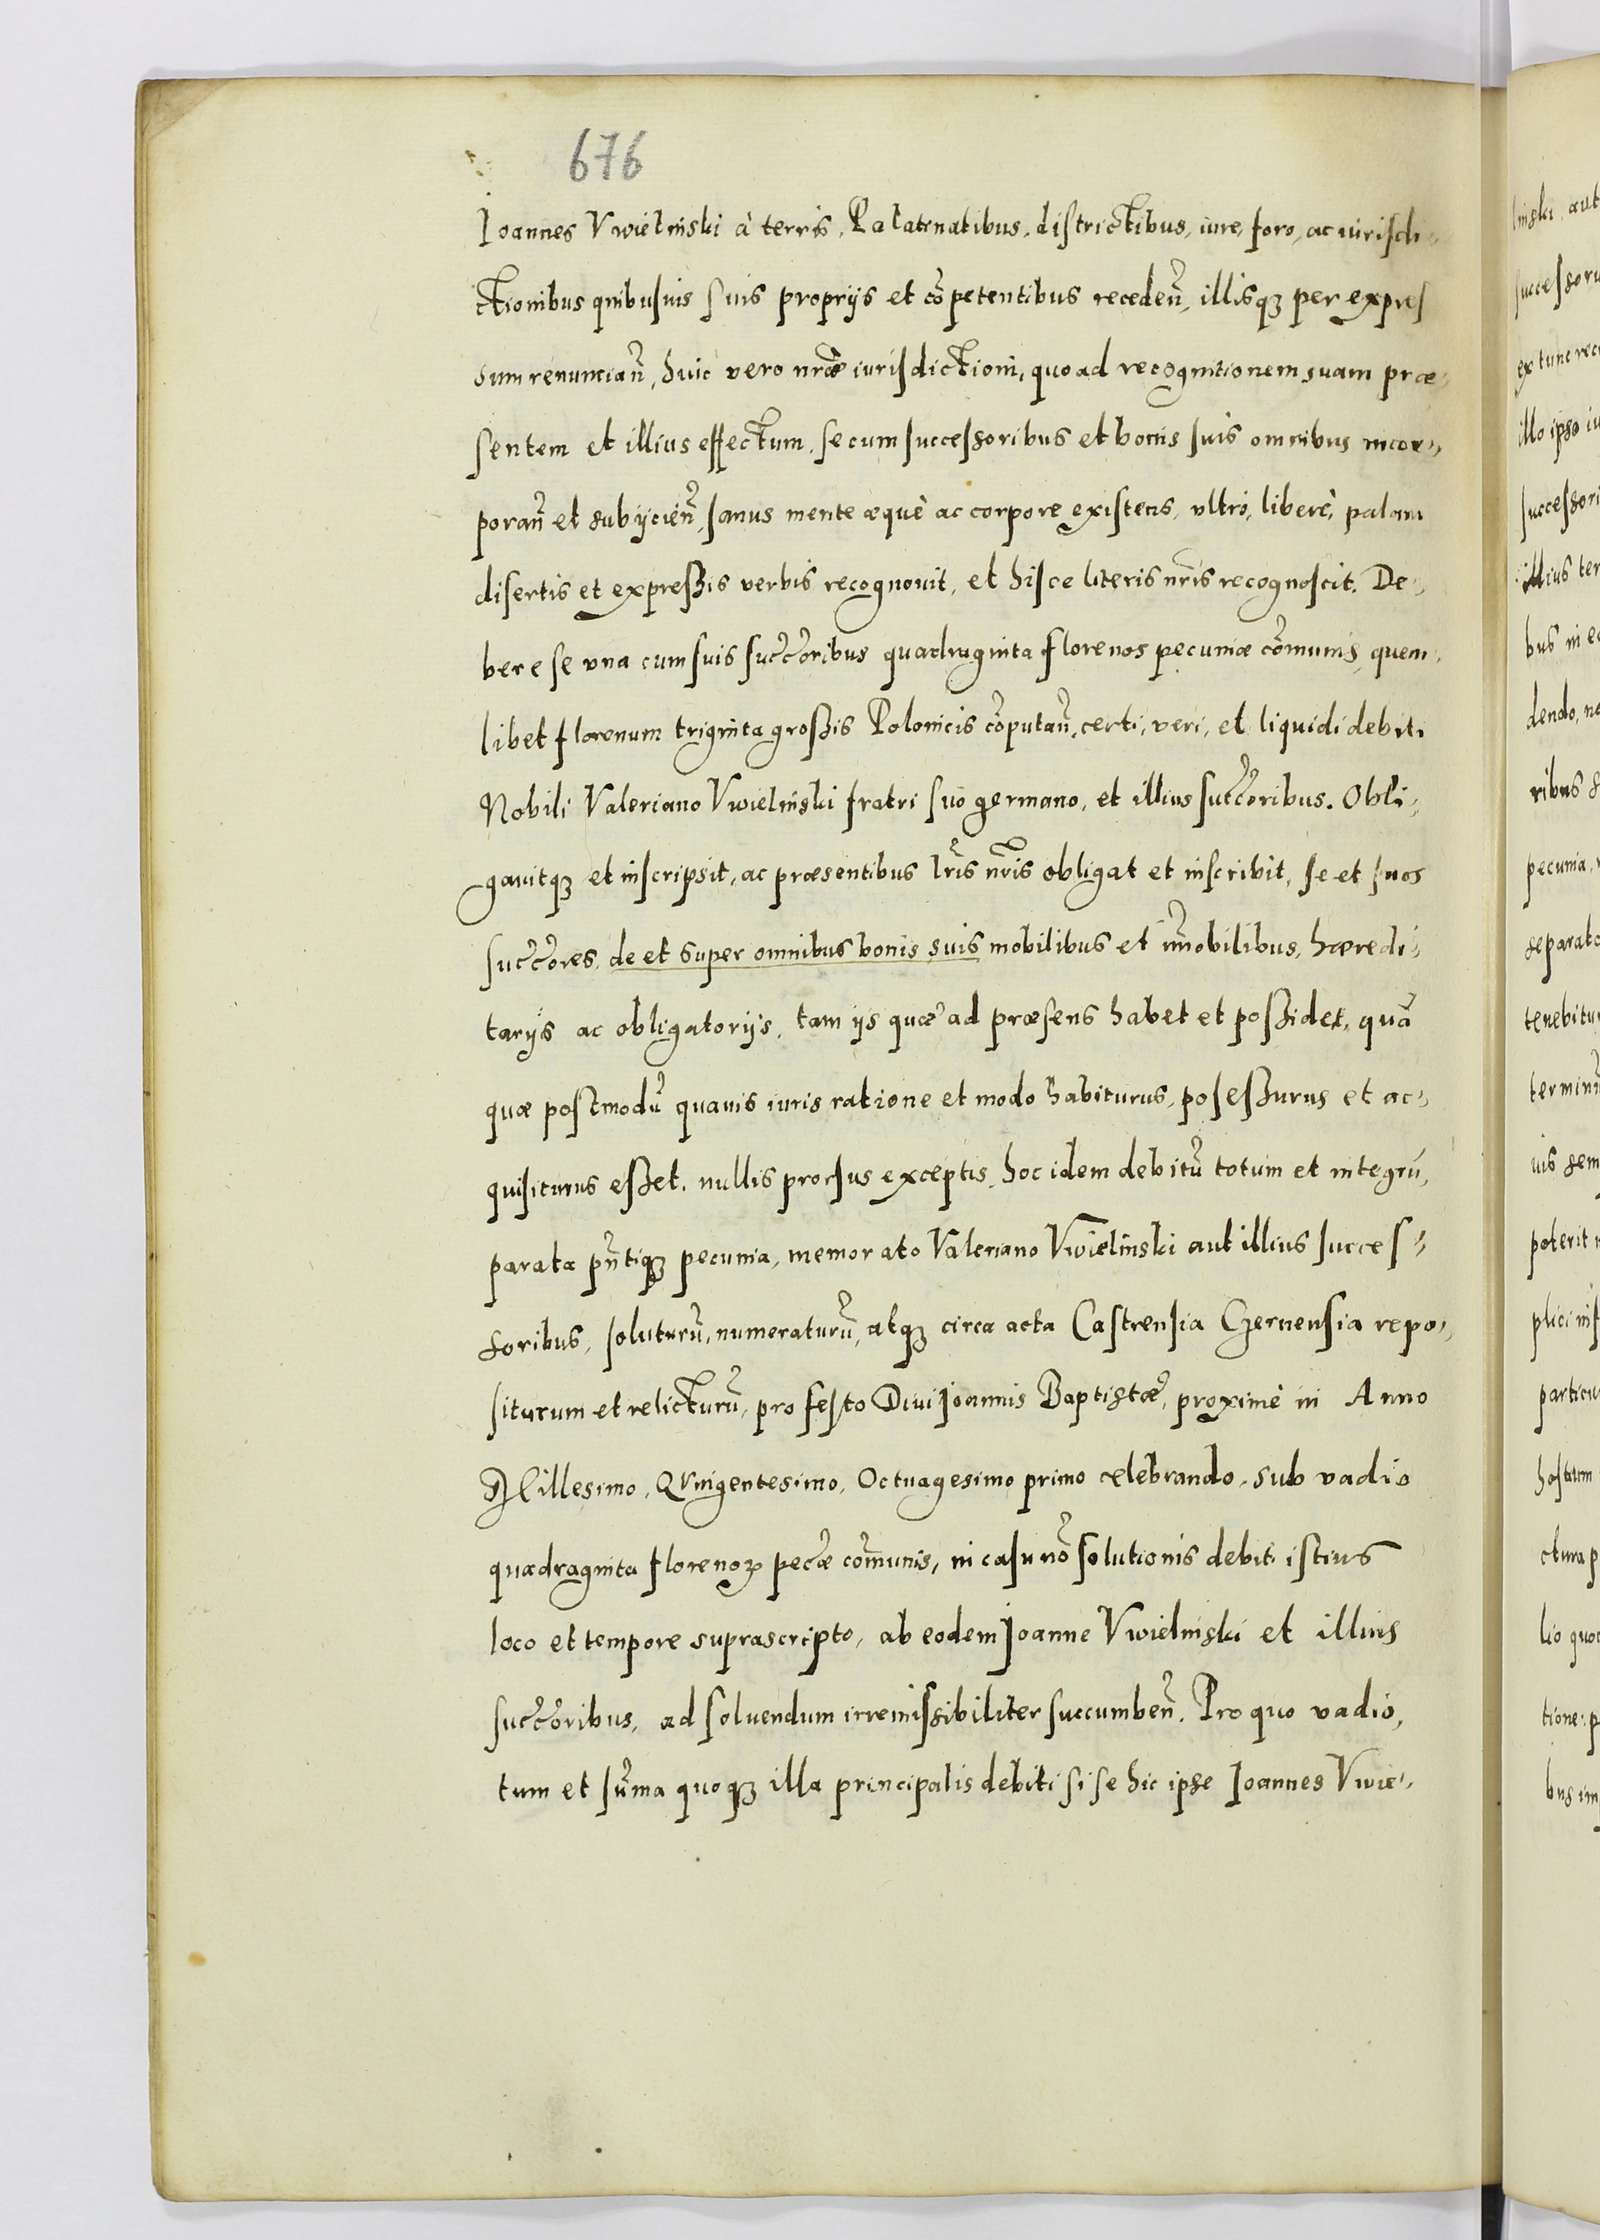 676
Joannes Vwielinski à terris, Palatinatibus, districtibus, iure, foro, ac iurisdi-
ctionibus quibusuis suis proprijs et cõpetentibus recedeñ, illisqʒ per expres
sum renunciañ, huic vero nr̃æ iurisdictioni, quoad recognitionem suam præ-
sentem et illius effectum, se cum successoribus et bonis suis omnibus incor-
porañ et subijcieñ, sanus mente æquè ac corpore existens, vltrò, liberè, palam
disertis et expressis verbis recognouit, et hisce literis nr̃is recognoscit. De-
bere se vna cum suis succ̃oribus quadraginta florenos pecuniæ cõmunis, quem-
libet florenum triginta grossis Polonicis cõputañ, certi, veri, et liquidi debiti
Nobili Valeriano Vwielinski fratri suo germano, et illius succ̃oribus. Obli-
gauitqʒ et inscripsit, ac præsentibus lr̃is nr̃is obligat et inscribit, se et suos
succ̃ores, de et super omnibus bonis suis mobilibus et im̃obilibus, hæredi-
tarijs ac obligatorijs, tam ijs quæ ad præsens habet et possidet, quã
quæ postmodũ quauis iuris ratione et modo habiturus, possessurus et ac-
quisiturus esset, nullis prorsus exceptis, hoc idem debitũ totum et integrũ,
parata pñtiqʒ pecunia, memorato Valeriano Vwielinski aut illius succes-
soribus, soluturũ, numeraturũ, atqʒ circa acta Castrensia Czernensia repo-
siturum et relicturũ, pro festo Diui Joannis Baptistæ, proximè in Anno
Millesimo, Quingentesimo, Octuagesimo primo celebrando, sub vadio
quadraginta florenoꝝ pec̃æ com̃unis, in casu nõ solutionis debiti istius
loco et tempore suprascripto, ab eodem Joanne Vwielinski et illius
succ̃oribus, ad soluendum irremissibiliter succumbeñ. Pro quo vadio,
tum et sum̃a quoqʒ illa principalis debiti si se hic ipse Joannes Vwie-